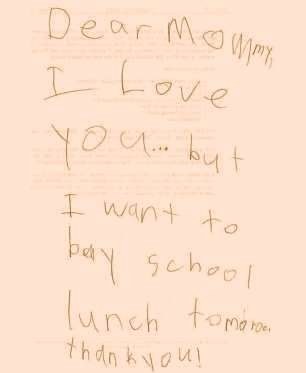 Dear Mommy,
I Love
you... but
I want to
bay school
lunch tomoroe.
thank you!